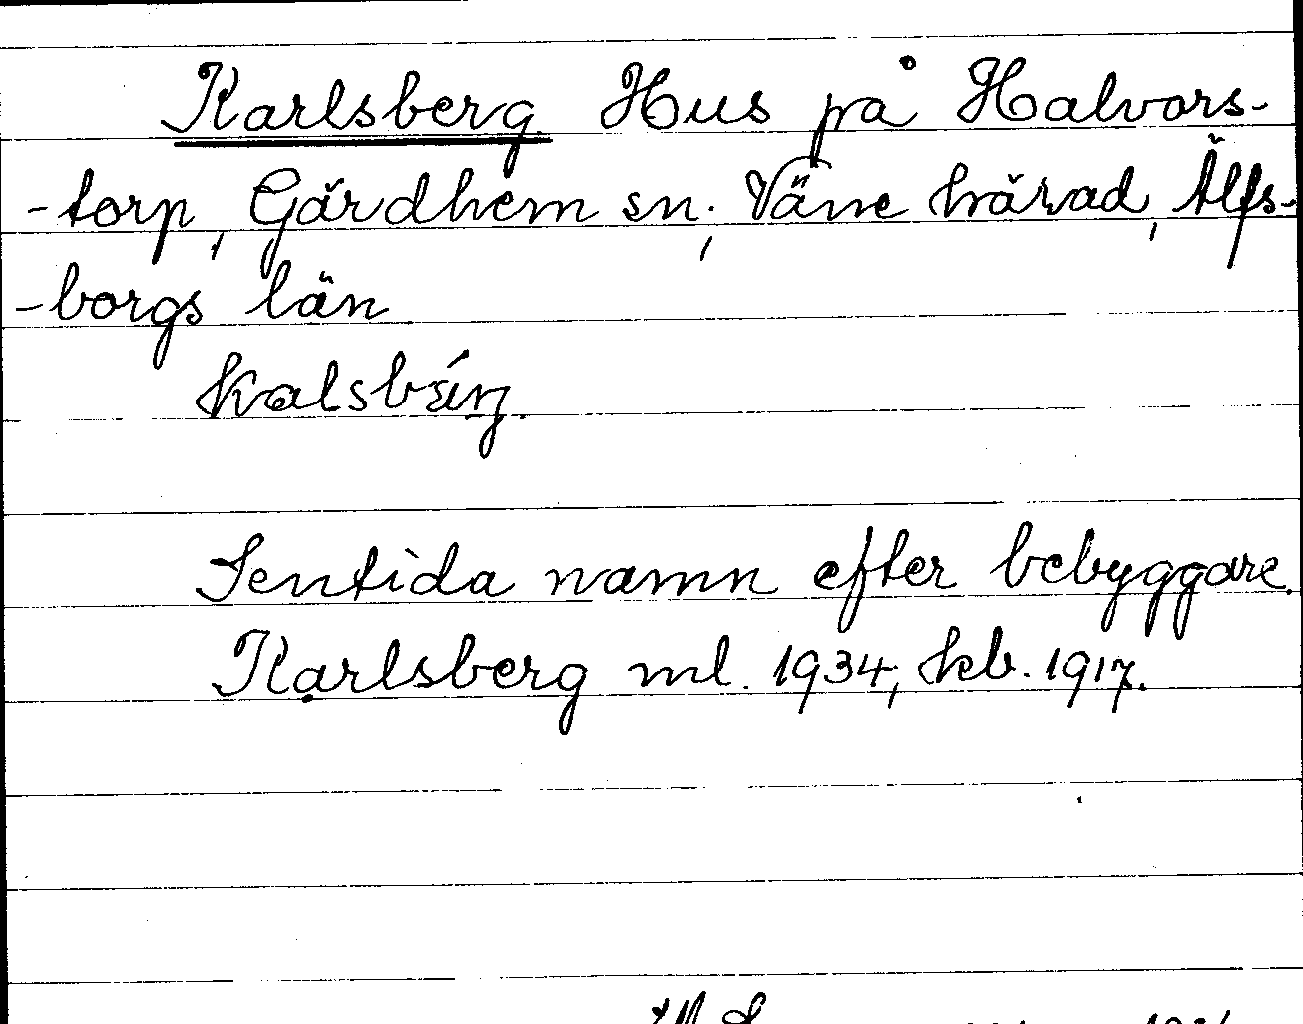 Karlsberg Hus på Halvors-
-torp, Gärdhem sn, Väne härad, Älfs-
-borgs län
Sentida namn efter bebyggare.
Karlsberg ml. 1934, kb. 1917.